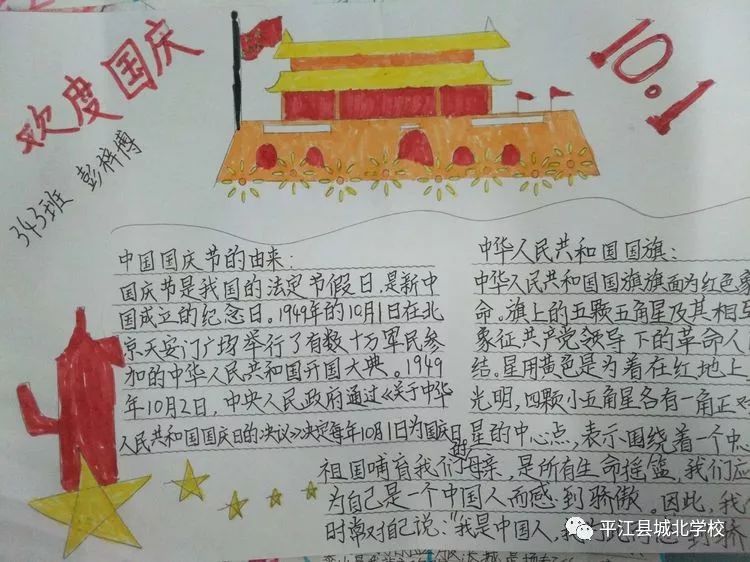 欢度国庆
10.1
343班 彭梓博
中国国庆节的由来:
国庆节是我国的法定节假日,是新中
国成立的纪念日。1949年的10月1日在北
京天安门广场举行了有数十万军民参
加的中华人民共和国开国大典。1949
年10月2日,中央人民政府通过《关于中华
人民共和国国庆日的决议》决定每年10月1日为国庆日
中华人民共和国国旗:
中华人民共和国国旗旗面为红色象
命。旗上的五颗五角星及其相互
象征共产党领导下的革命人
结。星用黄色是为着在红地上
光明,四颗小五角星各有一角正对
星的中心点,表示围绕着一个中心
祖国哺育我们的母亲,是所有生命摇篮,我们应
为自己是一个中国人而感到骄傲。因此,我
时常对自己说:"我是中国人,我
到骄
平江县城北学校